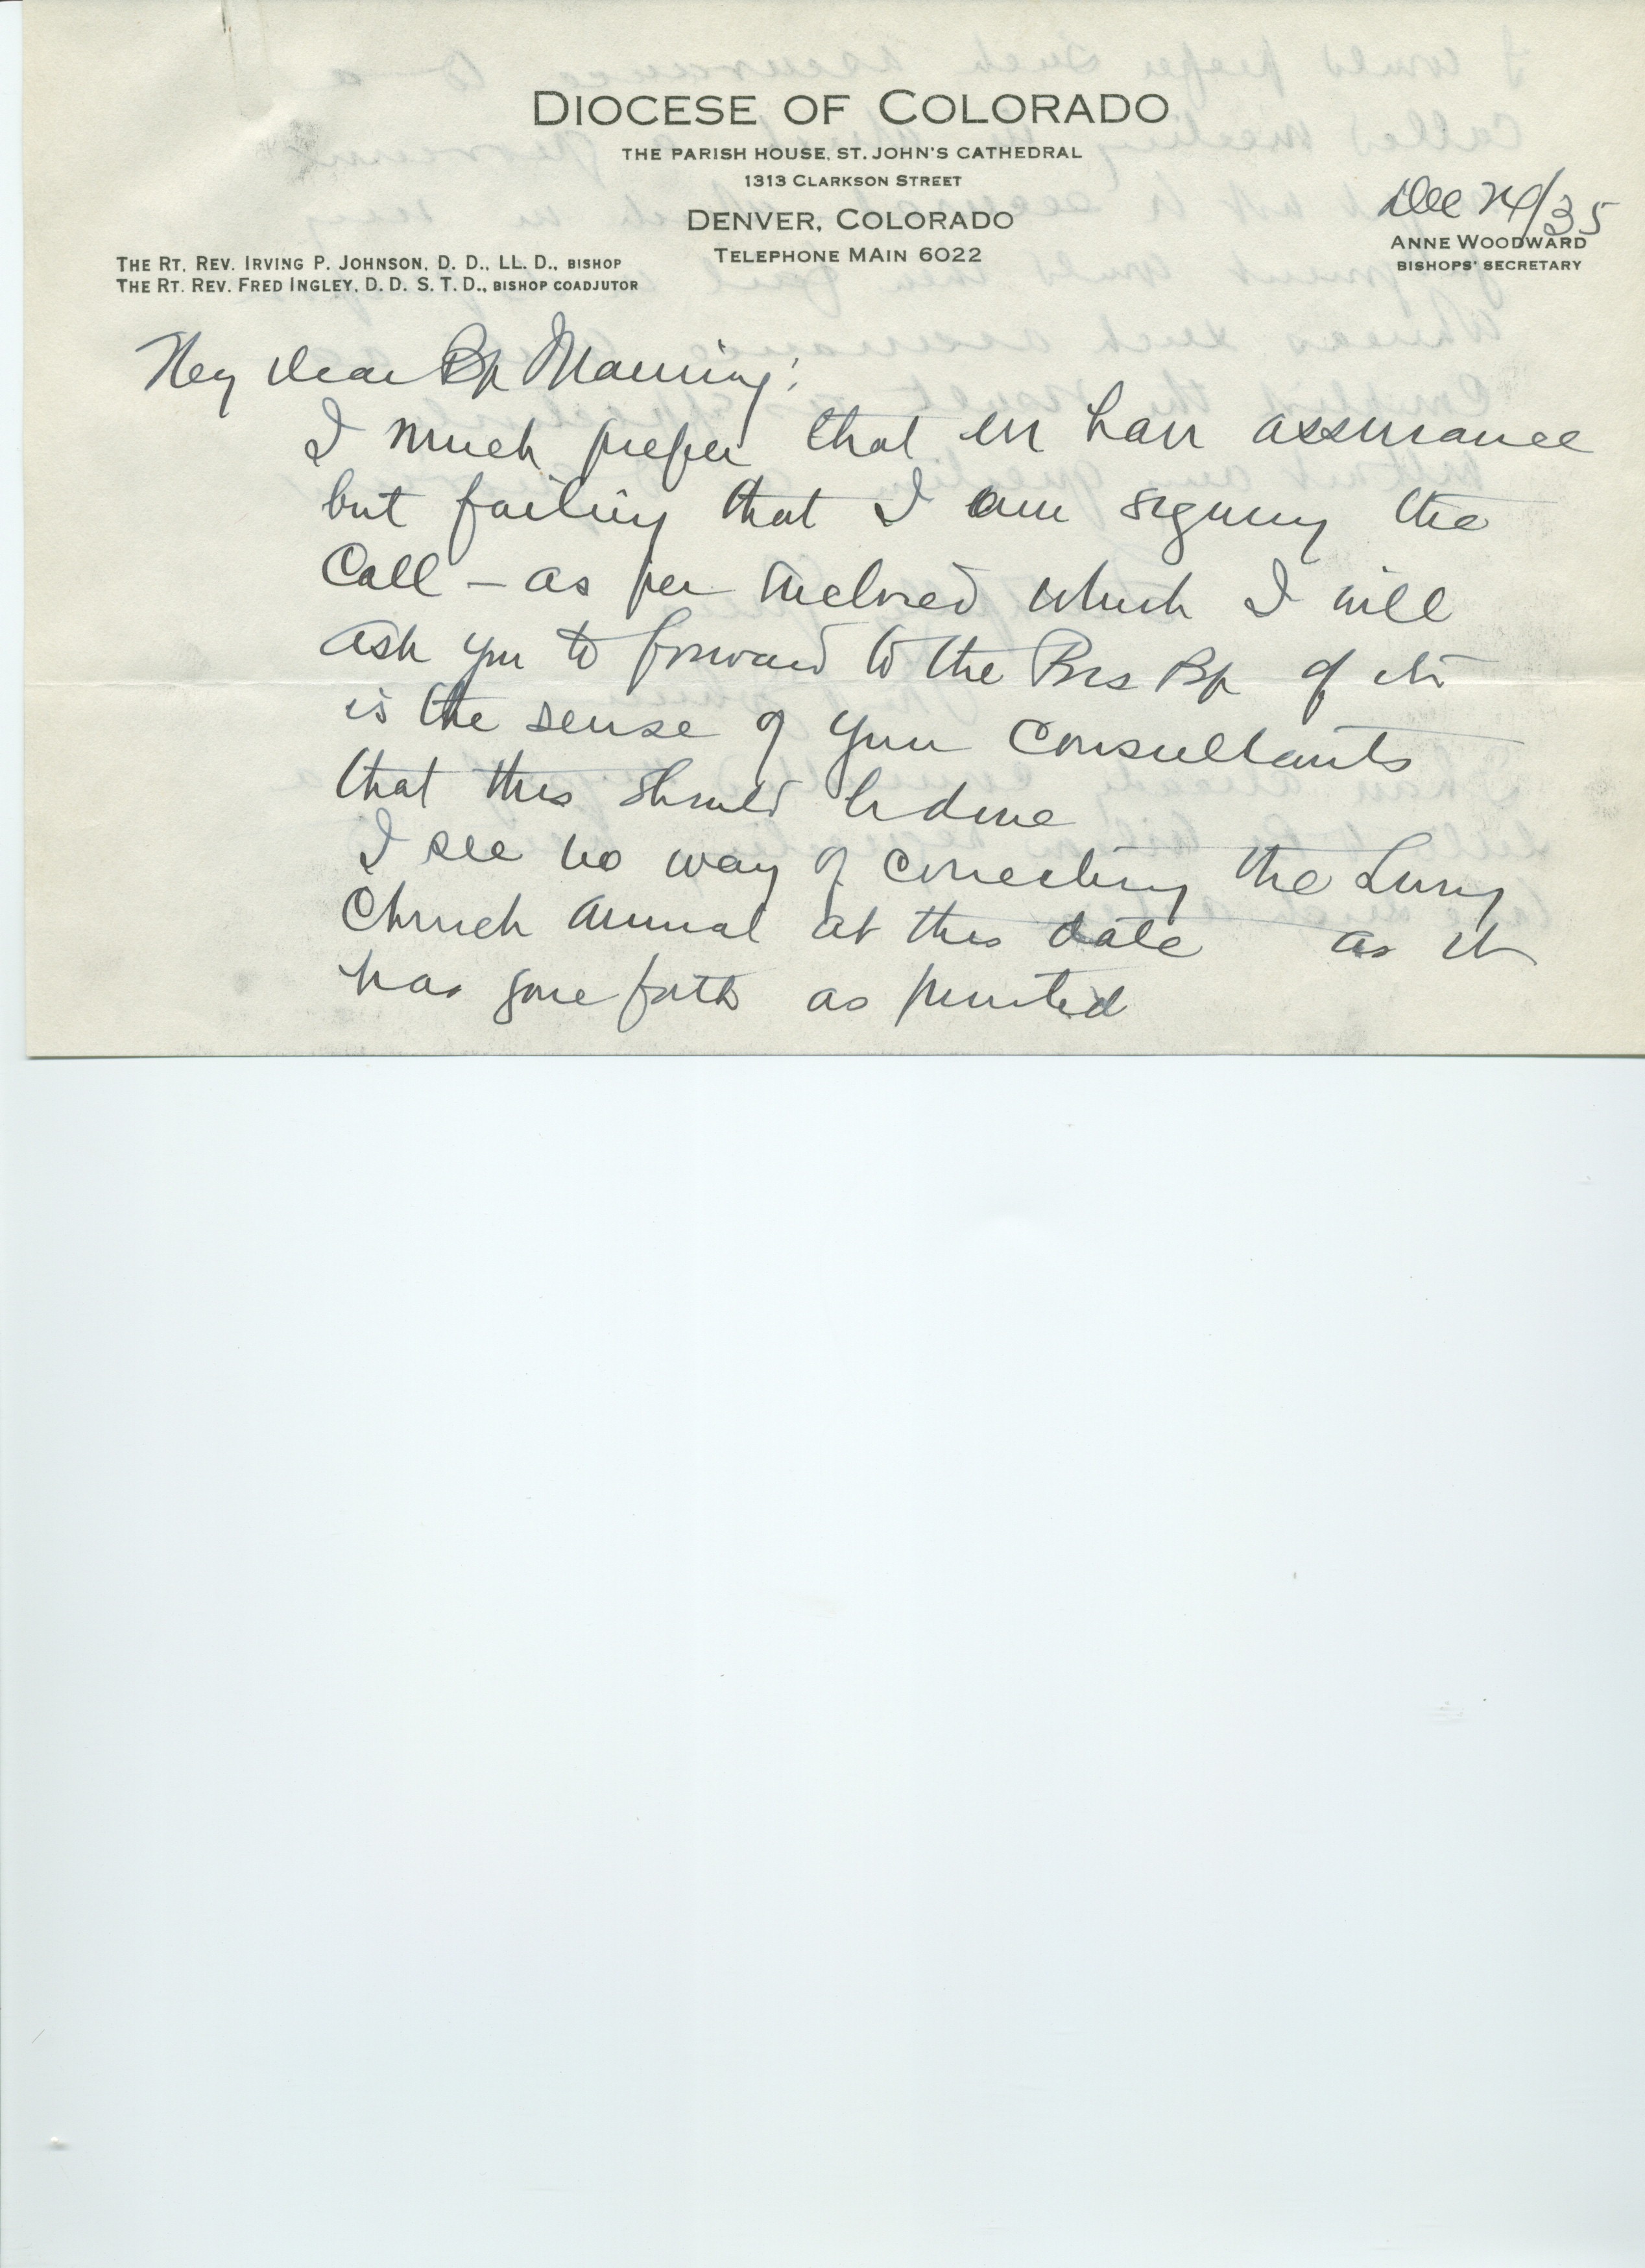 DIOCESE OF COLORADO
THE PARISH HOUSE, ST. JOHN'S CATHEDRAL
1313 CLARKSON STREET
DENVER, COLORADO
TELEPHONE MAIN 6022
Dec 24/35
ANNE WOODWARD
BISHOPS' SECRETARY
THE RT. REV. IRVING P. JOHNSON, D. D., LL. D., BISHOP
THE RT. REV. FRED INGLEY, D. D. S. T. D., BISHOP COADJUTOR
My dear Bp Manning:
I much prefer that we have assurance
but failing that I am signing the
Call – as per inclosed which I will
ask you to forward to the Pres Bp if it
is the sense of your consultants
that this should be done
I see no way of correcting the Living
Church Annual at this date as it
has gone forth as printed